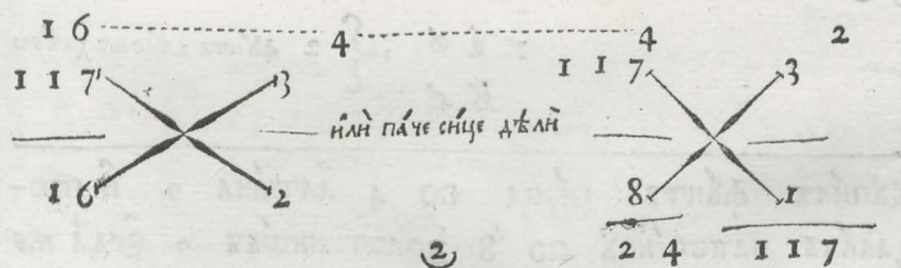 1 6 4 4 2
1 1 7 3 1 1 7 3
и҆лѝ па́че си́це дѣлѝ
1 6 2 8 1
2 2 4 1 1 7